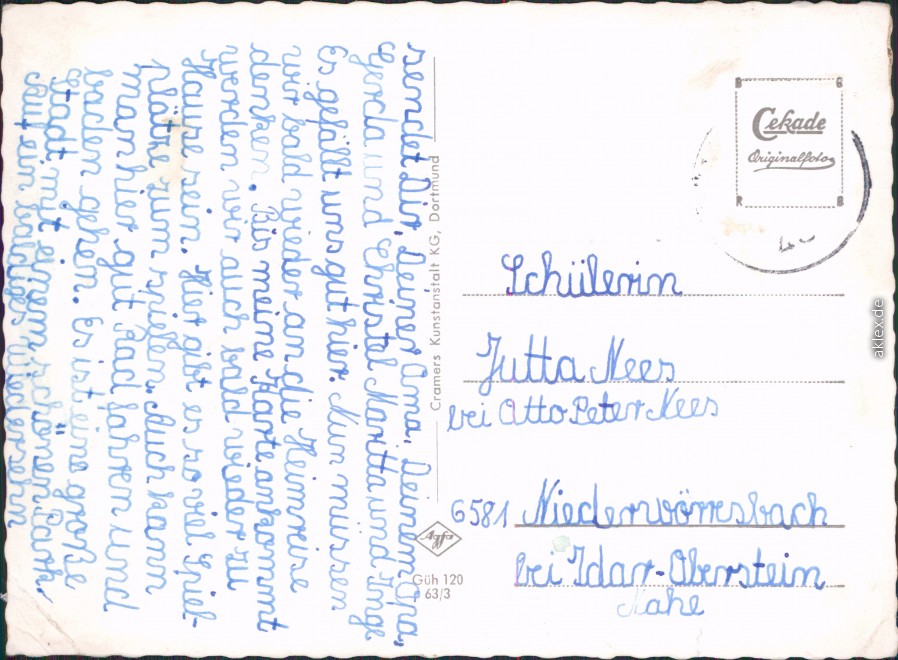 sendet Dir, Deiner Oma, Deinem Opa,
Gerda und Christel Moritta und Inge
Es gefällt uns gut hier. Nun müssen
wir bald wieder an die Heimreise
denken. Bis meine Karte ankommt
werden wir auch bald wieder zu
Hause sein. Hier gibt es so viel Spiel-
plätze zum spielen. Auch kann
man hier gut Rad fahren und
baden gehen. Es ist eine große
Stadt mit einem schönen Park.
Auf ein baldiges Wiedersehn
Cramers Kunstanstalt KG, Dortmund
Agfa
Güh 120
63/3
B G
Cekade
Originalfoto
R B
Schülerin
Jutta Nees
bei Otto Peter Nees
6581 Niederwörresbach
bei Idar-Oberstein
Nahe
aklex.de